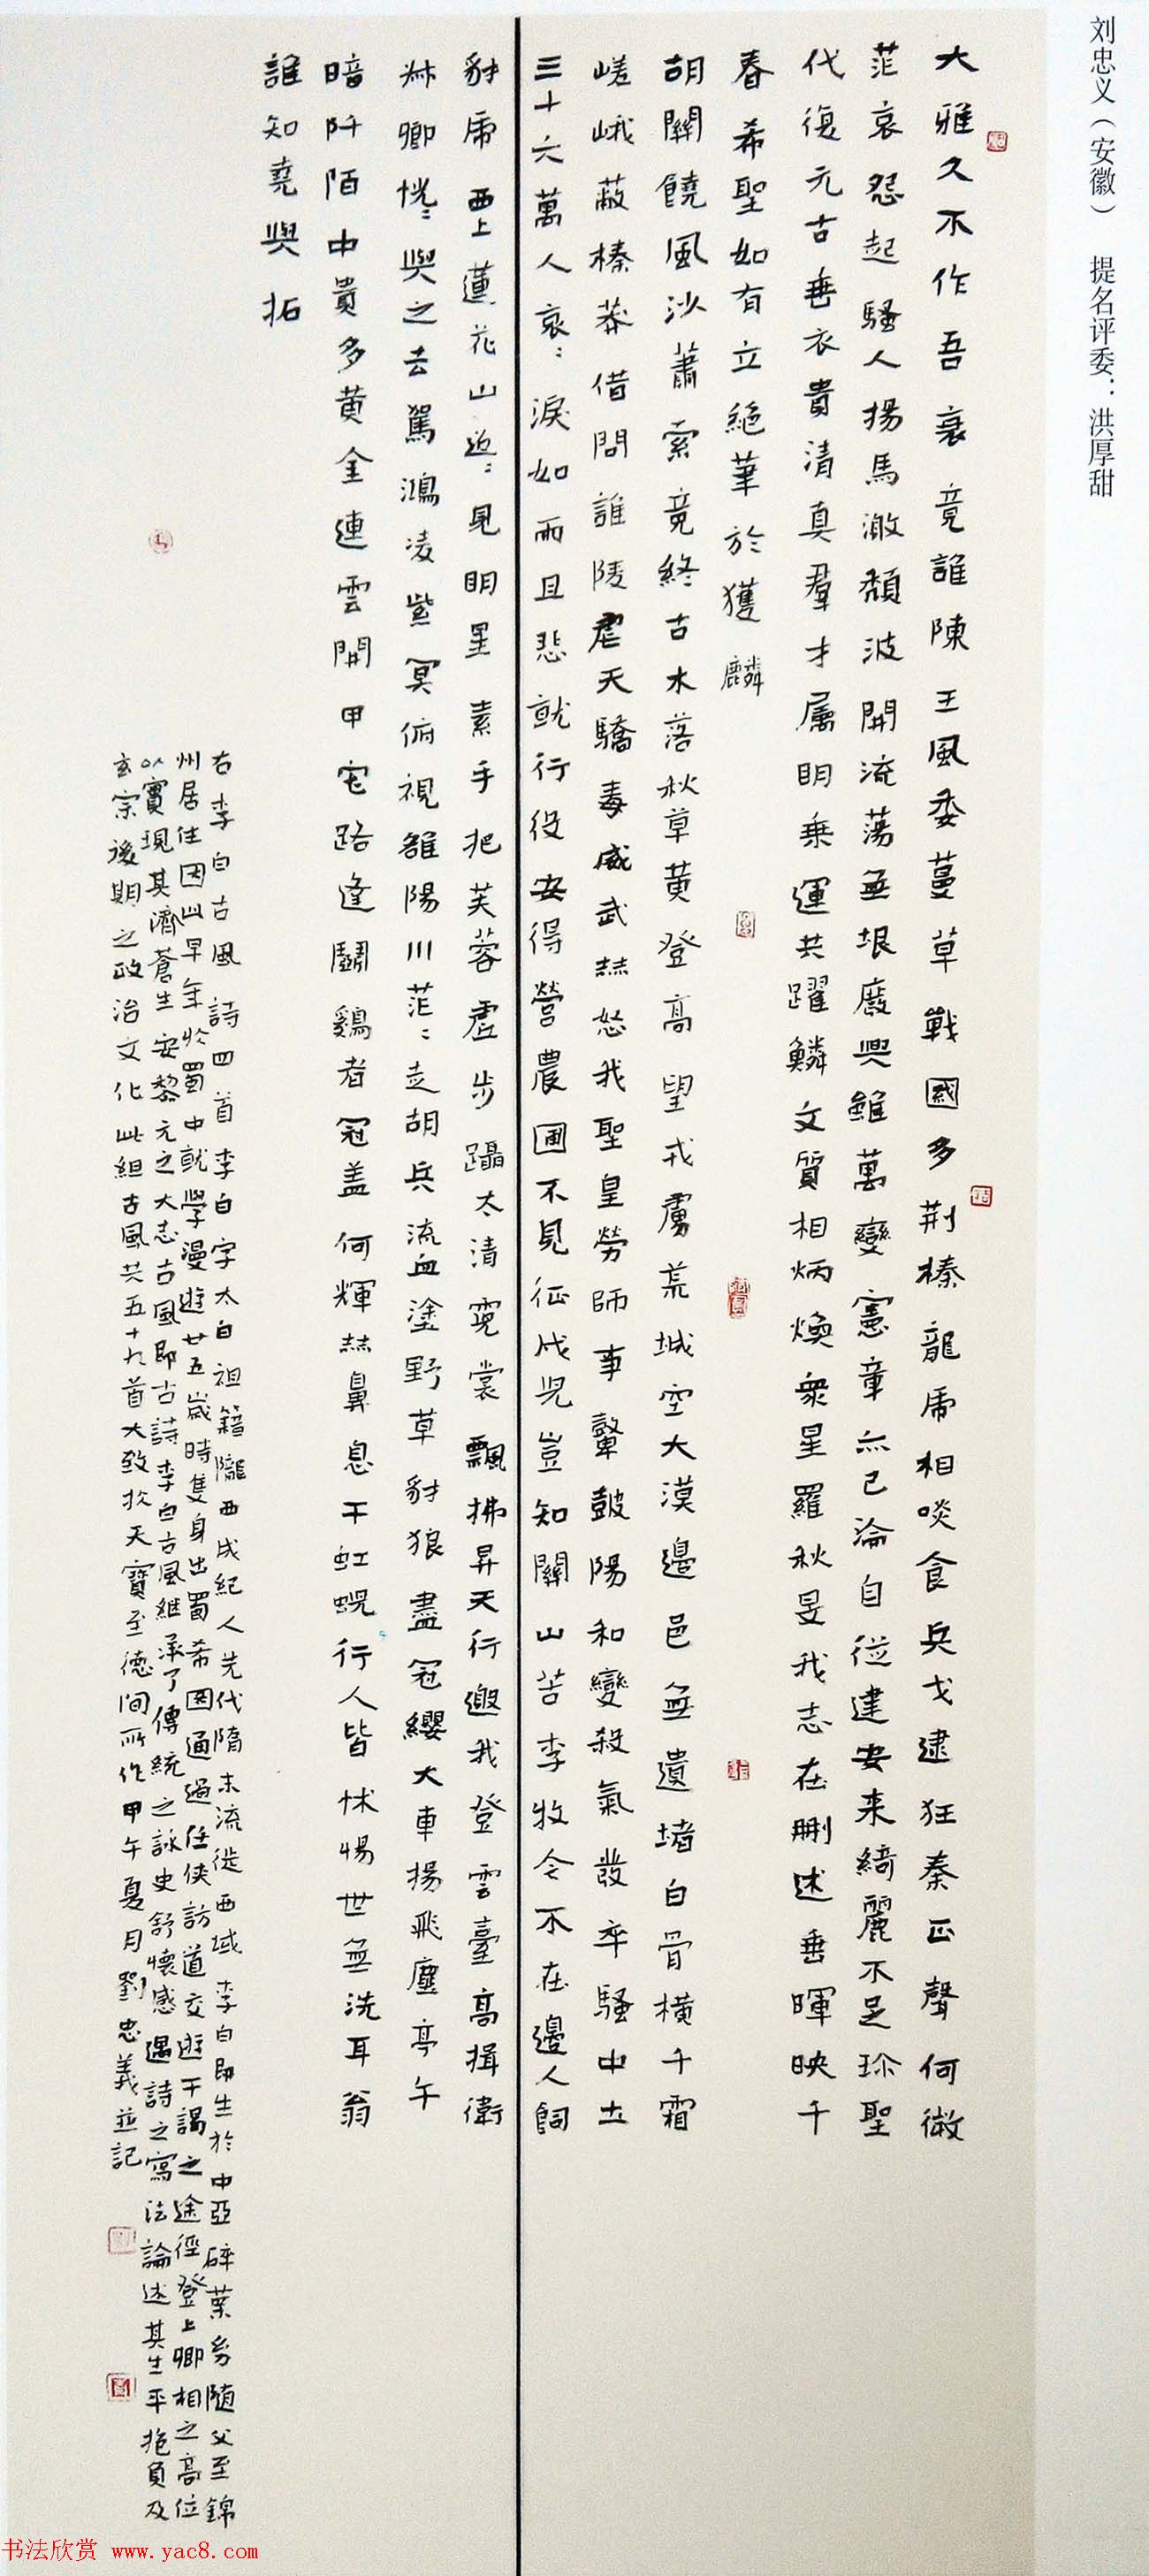 刘忠义（安徽）　提名评委：洪厚甜
大雅久不作吾衰竟誰陳王風委蔓草戰國多荆榛龍虎相啖食兵戈逮狂秦正聲何微
茫哀怨起騷人揚馬激頹波開流蕩無垠廢興雖萬變憲章亦已淪自從建安来綺麗不足珎聖
代復元古垂衣貴清真羣才屬明乗運共躍鱗文質相炳煥衆星羅秋旻我志在刪述垂暉映千
春希聖如有立絕筆於獲麟
胡關饒風沙蕭索竟終古木落秋草黄登高望戎虜荒城空大漠邊邑無遺堵白骨橫千霜
嵯峨蔽榛莽借問誰陵虐天驕毒威武赫怒我聖皇勞師事鼙鼓陽和變殺氣發卒騷中土
三十六萬人哀〻淚如雨且悲就行役安得營農圃不見征戍児豈知關山苦李牧今不在邊人飼
豺虎西上蓮花山迢〻見明星素手把芙蓉虛步躡太清霓裳飄拂昇天行邀我登雲臺高揖衛
叔卿恍〻與之去駕鴻凌紫冥俯視雒陽川茫〻走胡兵流血塗野草豺狼盡冠纓大車揚飛塵亭午
暗阡陌中貴多黄金連雲開甲宅路逢鬭鷄者冠盖何輝赫鼻息干虹蜺行人皆怵惕世無洗耳翁
誰知堯與拓
右李白古風詩四首李白字太白祖籍隴西成纪人先代隋末流徙西域李白即生於中亞碎葉㓜随父至錦
州居住因此早年於蜀中就學漫遊廿五嵗時隻身出蜀希图通過任侠訪道交遊干謁之途徑登上卿相之高位
以實現其濟蒼生安黎元之大志古風即古詩李白古風継承了傳統之詠史舒懷感遇詩之寫法論述其生平抱負及
玄宗後期之政治文化此组古風共五十九首大致於天寶至德间所作甲午夏月劉忠義並記
书法欣赏 www.yac8.com